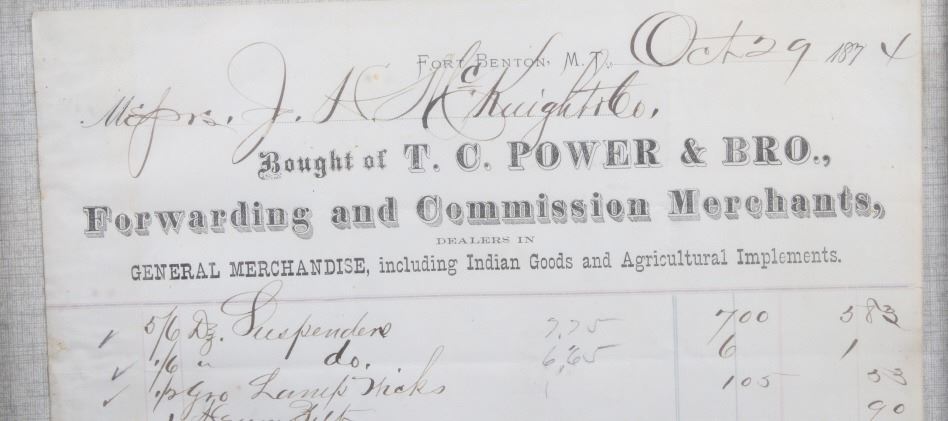 Fort Benton, M. T., Oct 29 1874
Messrs. J. H. McKnight & Co.
Bought of T. C. POWER & BRO.,
Forwarding and Commission Merchants,
DEALERS IN
GENERAL MERCHANDISE, including Indian Goods and Agricultural Implements.
5/6 Dz. Suspenders 7.75 7 00 5 83
1/6 " do. 6,65 6 1
Gro Lamp Wicks 1 05 53
90